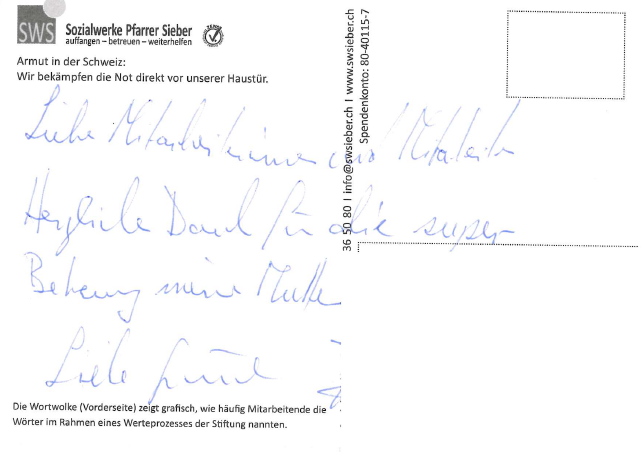 SWS
Sozialwerke Pfarrer Sieber
auffangen – betreuen – weiterhelfen
Armut in der Schweiz:
Wir bekämpfen die Not direkt vor unserer Haustür.
Liebe Mitarbeiterinnen und Mitarbeiter
Herzliche Dank für die super
Betreuung meine Mutter
Liebe
Die Wortwolke (Vorderseite) zeigt grafisch, wie häufig Mitarbeitende die
Wörter im Rahmen eines Werteprozesses der Stiftung nannten.
36 50 80 I info@swsieber.ch I www.swsieber.ch
Spendenkonto: 80-40115-7